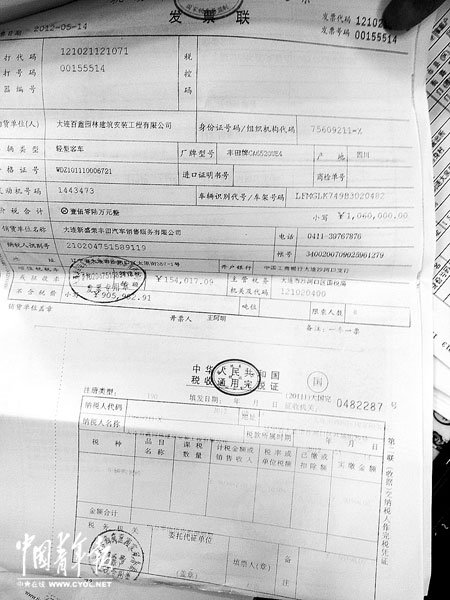 发票联
发票代码 121021
发票号码 00155514
票日期 2012-05-14
打代码 121021121071
打号码 00155514
器编号
税控码
货单位(人) 大连百鑫园林建筑安装工程有限公司 身份证号码/组织机构代码 75609211-X
辆类型 轻型客车 厂牌型号 丰田牌CA6520UE4 产地 四川
格证号 WDZ101110006721 进口证明书号 商检单号
动机号码 1443473 车辆识别代号/车架号码 LFMGLK749B3020482
价税合计 壹佰零陆万元整 小写 ¥1,060,000.00
销货单位名称 大连新盛荣丰田汽车销售服务有限公司 电话 0411-39767876
纳税人识别号 210204751589119 帐号 3400200709025961279
地址 开户银行 中国工商银行大连沙河口支行
增值税税率 ¥154,017.09 主管税务机关及代码 大连市沙河口区国税局 121020400
不含税价 小写 ¥905,982.91 吨位 限乘人数
销货单位盖章 开票人 备注:一车一票
中华人民共和国
税收通用完税证
国
注册类型: 填发日期: 年 月 日 征收机关:
(2011)大国完 0482287 号
纳税人代码 地址
纳税人名称 税款所属时期 年 月 日
税种 品目名称 课税数量 计税金额或销售收入 税率或单位税额 已缴或扣除额 实缴金额
金额合计
税务机关 委托代征单位 备注
(盖章) 填票人(章)
第一联(收据)交纳税人作完税凭证
中国青年报
中青在线 WWW.CYOL.NET